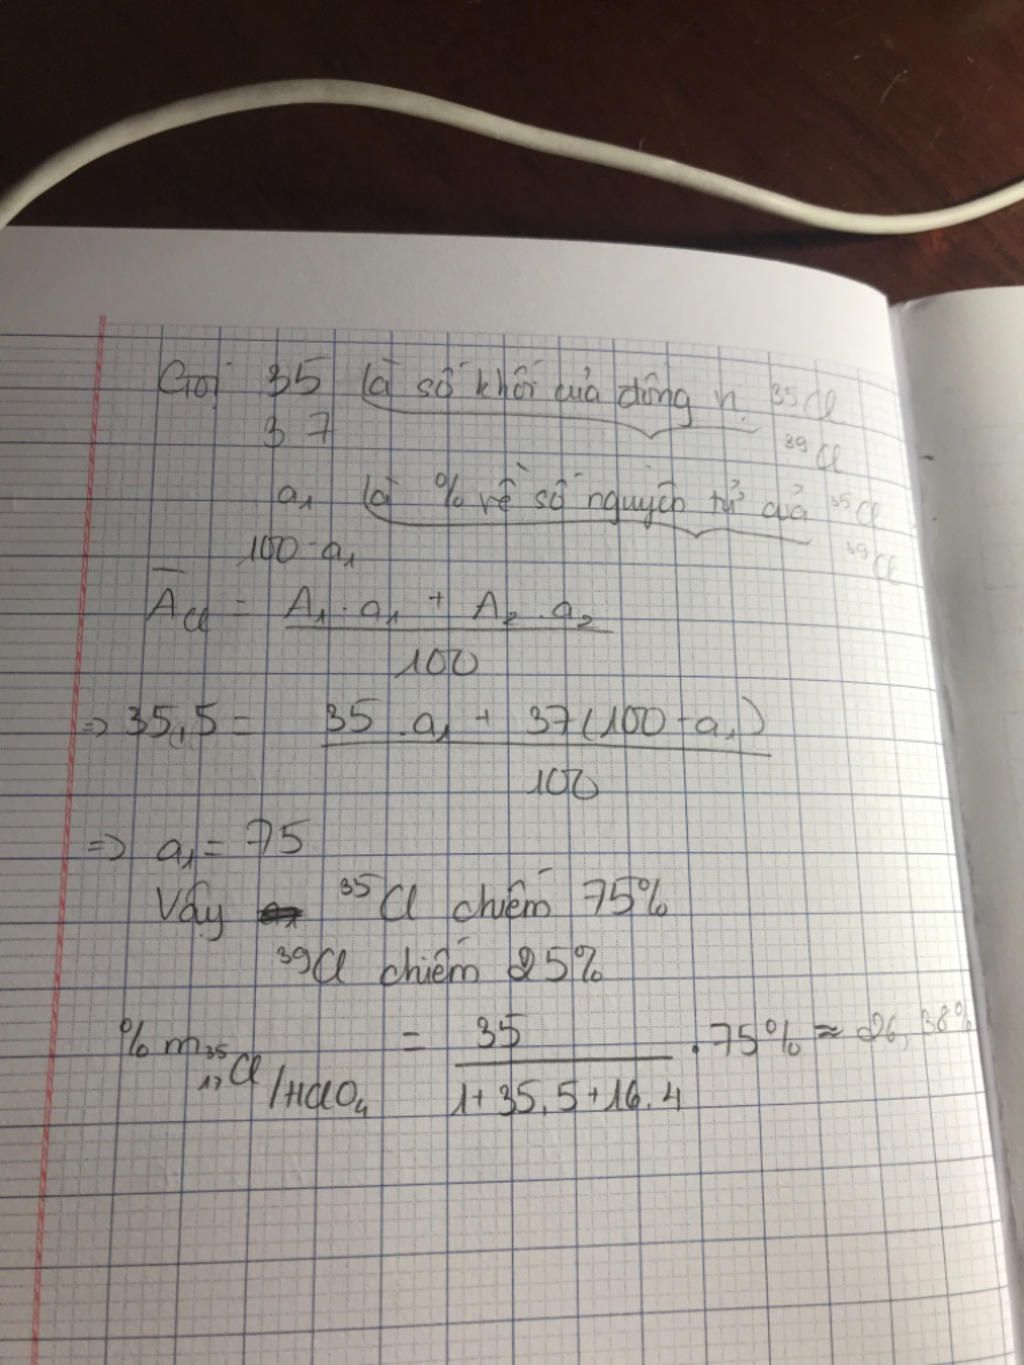 Gọi 35 là số khối của đồng vị ³⁵Cl
37 ³⁹Cl
a₁ là % về số nguyên tử của ³⁵Cl
100-a₁ ³⁹Cl
A̅Cl = A₁.a₁ + A₂.a₂ / 100
=> 35,5 = 35.a₁ + 37(100-a₁) / 100
=> a₁ = 75
Vậy ³⁵Cl chiếm 75%
³⁹Cl chiếm 25%
%m ³⁵₁₇Cl/HClO₄ = 35 / 1+35,5+16.4 . 75% ≈ 26,38%